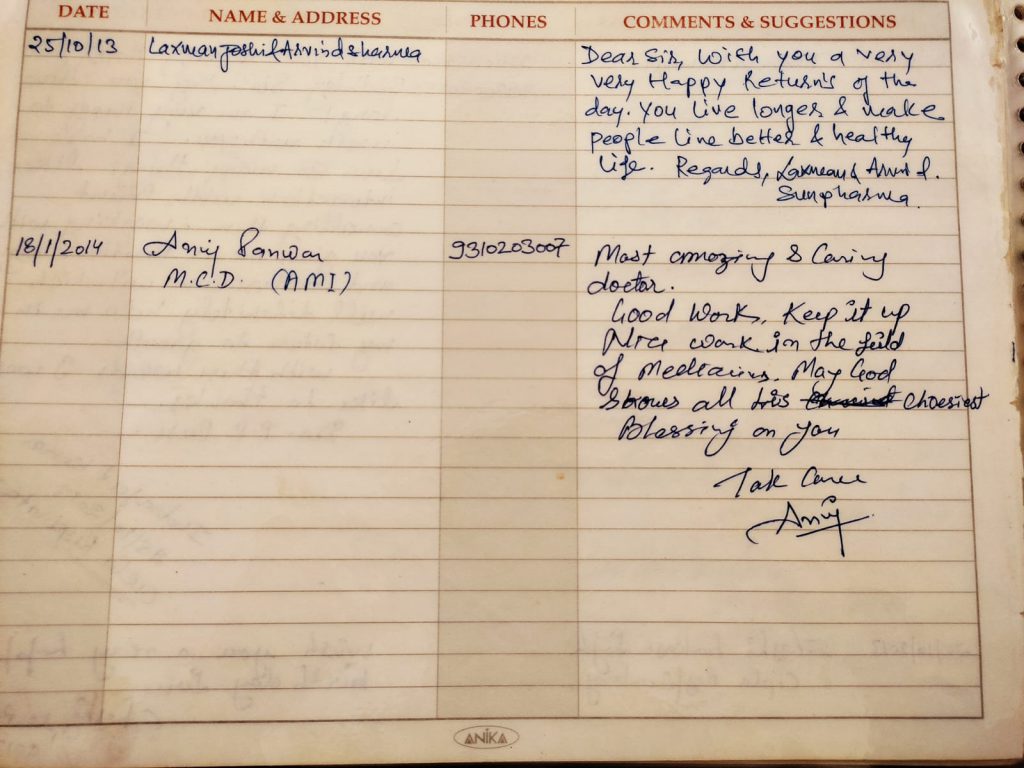 DATE NAME & ADDRESS PHONES COMMENTS & SUGGESTIONS
25/10/13 Laxman Joshi & Arvind Sharma
Dear Sir, With you a very
very Happy Return's of the
day. You Live longer & make
people Live better & healthy
Life. Regards, Laxman & Arvind
Sunpharma.
18/1/2014 Panwar 9310203007
M.C.D. (AMI)
Most amazing & Caring
doctor.
Good Work, Keep it up
Nice work in the feild
of Medicines. May God
all his Choesiest
Blessing on you
Take Care
ANIKA